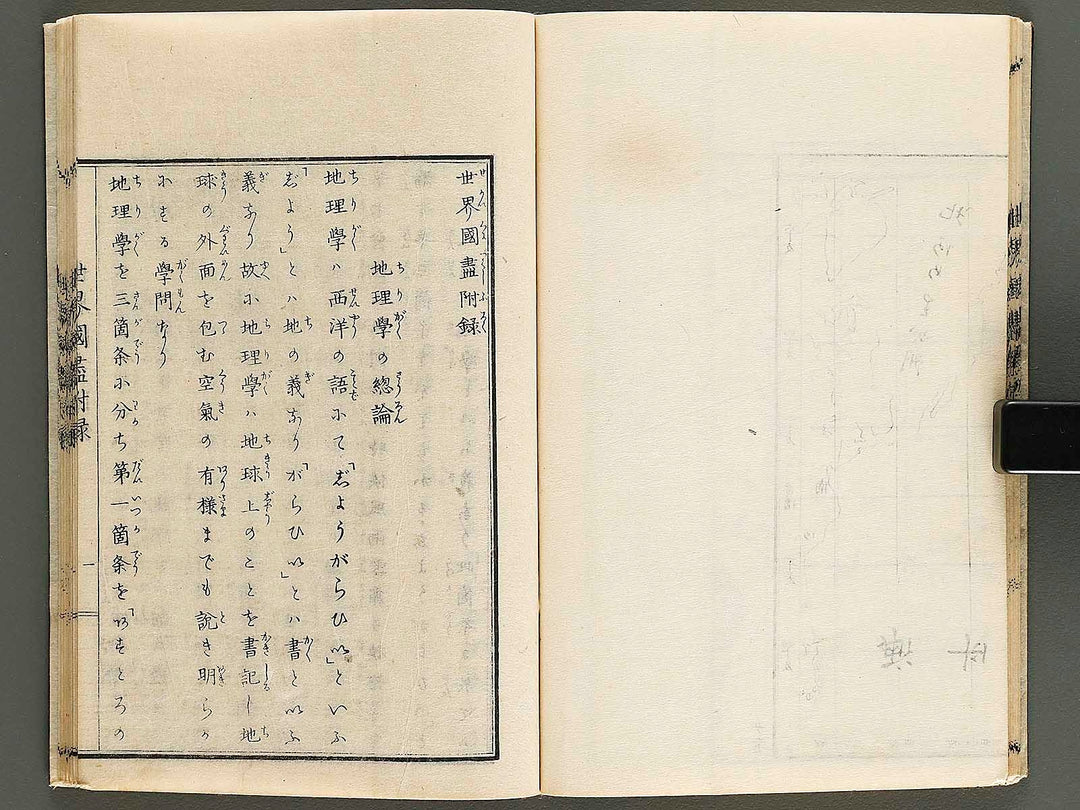 世界國盡附録
地理學の總論
地理學ハ西洋の語ふて「志ようがらひい」といふ
「志よう」とハ地の義なり「がらひい」とハ書といふ
義なり故ふ地理學ハ地球上のことを書記し地
球の外面を包む空氣の有樣までも説き明らか
ふする學問なり
地理學を三箇条ふ分ち第一箇条を「あすとろの
世界國盡附録
一